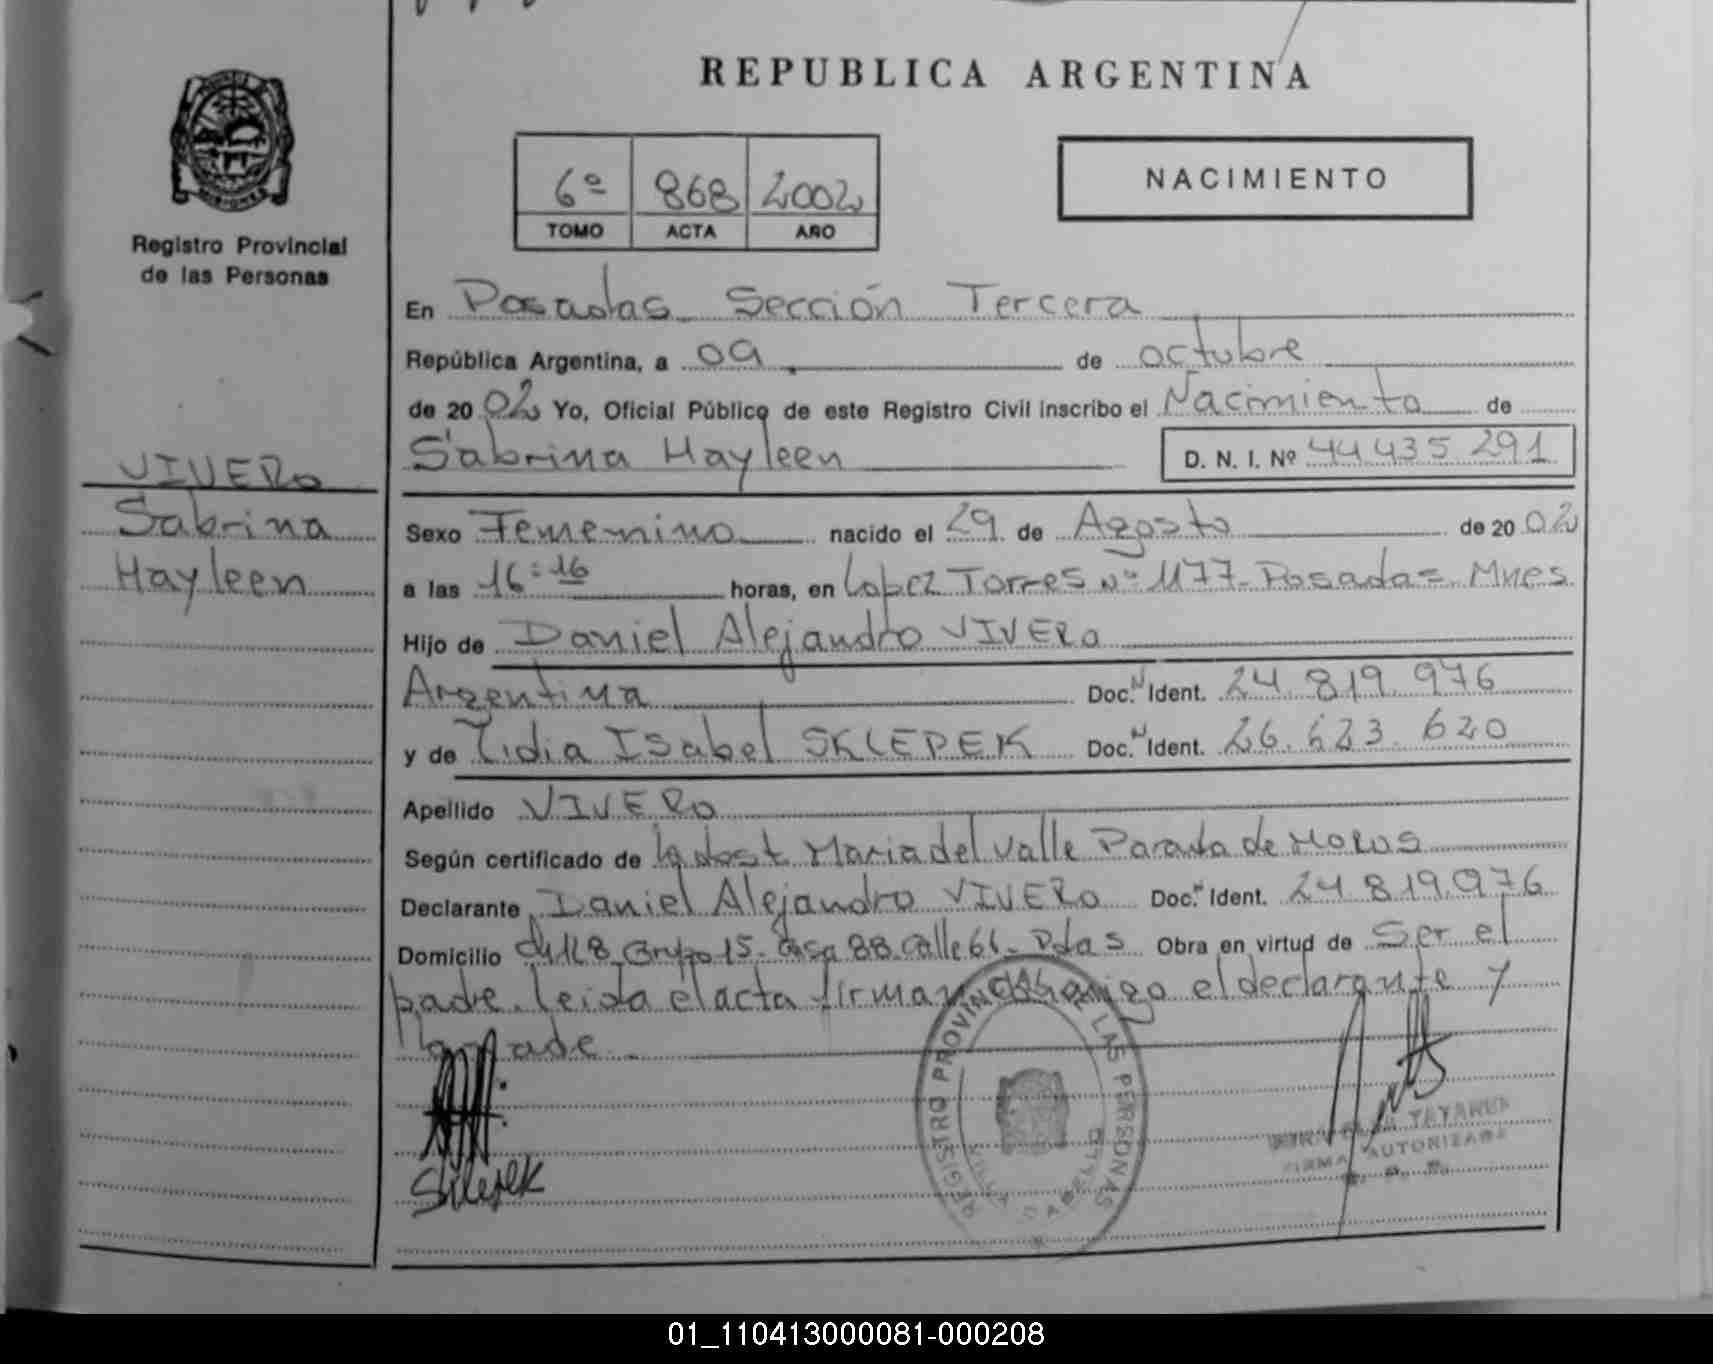 REPUBLICA ARGENTINA
MISIONES
Registro Provincial
de las Personas
6º 868 2002
TOMO ACTA AÑO
NACIMIENTO
VIVERO
Sabrina
Hayleen
En Posadas Sección Tercera
República Argentina, a 09 de octubre
de 2002 Yo, Oficial Público de este Registro Civil inscribo el Nacimiento de
Sabrina Hayleen D. N. I. Nº 44 435 291
Sexo Femenino nacido el 29 de Agosto de 20 02
a las 16:16 horas, en Lopez Torres Nº 1177 - Posadas - Mnes
Hijo de Daniel Alejandro VIVERO
Argentina Doc. N Ident. 24 819 976
y de Lidia Isabel SKLEPEK Doc. N Ident. 26.623.620
Apellido VIVERO
Según certificado de la Obst. Maria del Valle Parada de
Declarante Daniel Alejandro VIVERO Doc. N Ident. 24 819 976
Domicilio Grupo 15 - casa 88 calle 61 - Pdas Obra en virtud de Ser el
padre. leida el acta firman conmigo el declarante y
la madre.
Sklepek
REGISTRO PROVINCIAL DE LAS PERSONAS
VILLA CABELLO
FIRMA AUTORIZADA
01_110413000081-000208